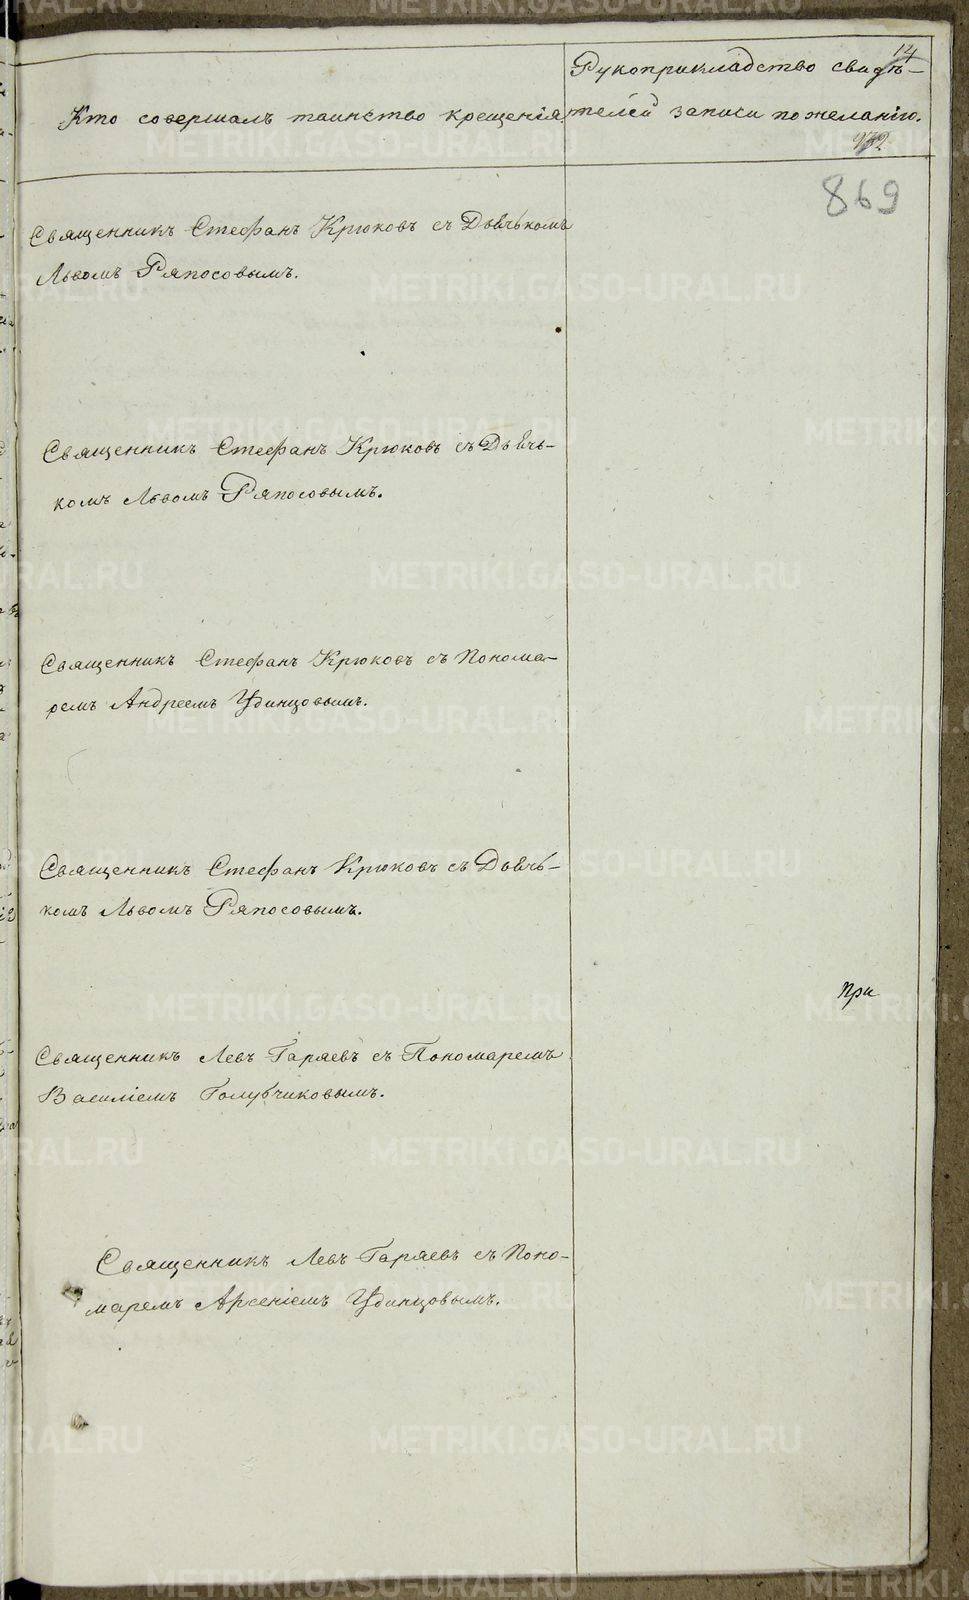 14
Рукоприкладство свидѣ-
Кто совершалъ таинство крещенія.
телей записи по желанію.
869
Священникъ Стефанъ Крюковъ съ Дьячькомъ
Львомъ Ряпосовымъ.
Священникъ Стефанъ Крюковъ съ Дьячь-
комъ Львомъ Ряпосовымъ.
Священникъ Стефанъ Крюковъ съ Понома-
ремъ Андреемъ Удинцовымъ.
Священникъ Стефанъ Крюковъ съ Дьячь-
комъ Львомъ Ряпосовымъ.
При
Священникъ Левъ Гаряевъ съ Пономаремъ
Василіемъ Голубчиковымъ.
Священникъ Левъ Гаряевъ съ Поно-
маремъ Арсеніемъ Удинцовымъ.
METRIKI.GASO-URAL.RU